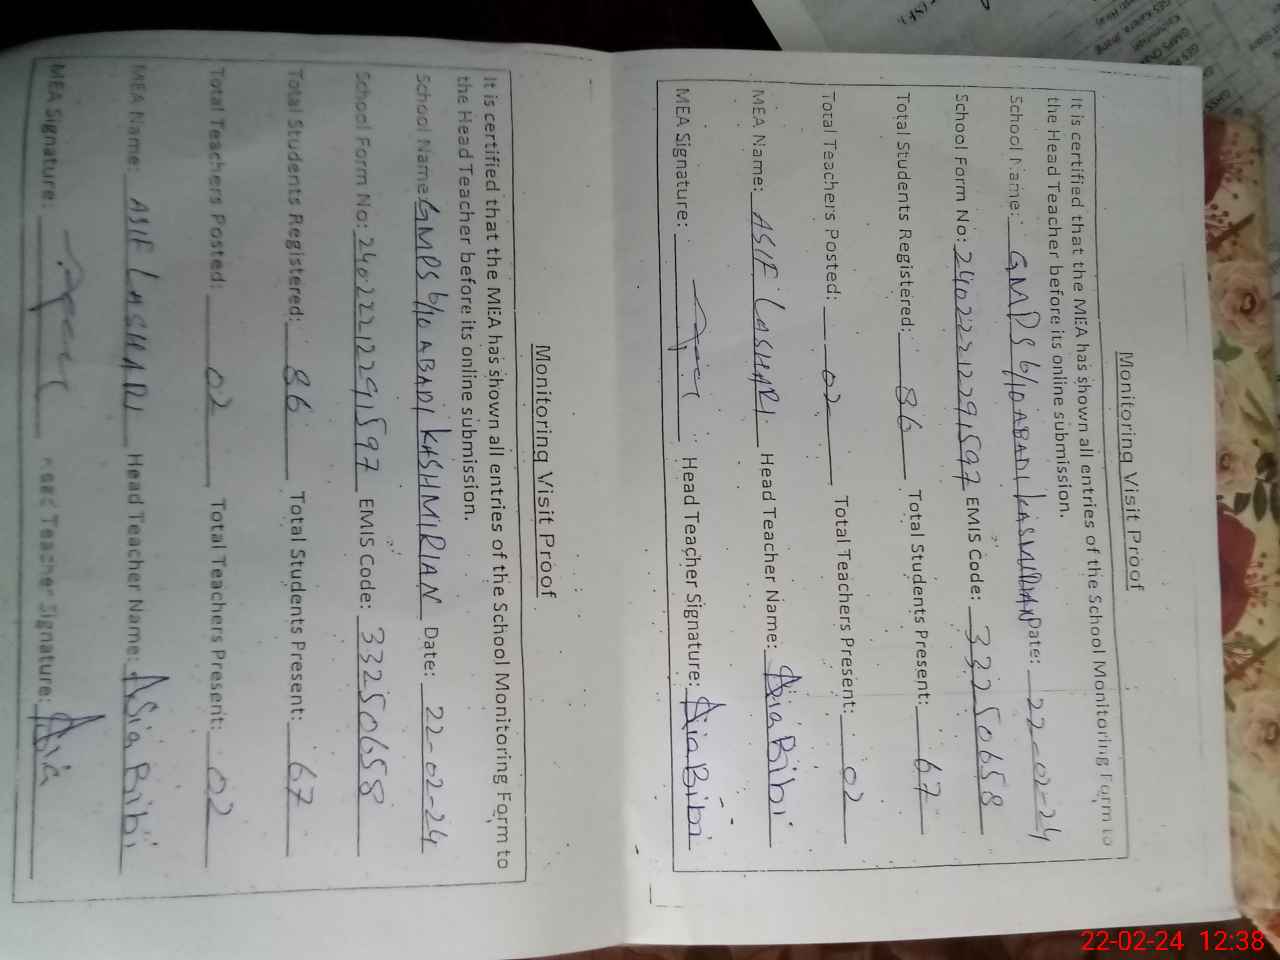 Monitoring Visit Proof
It is certified that the MEA has shown all entries of the School Monitoring Form to
the Head Teacher before its online submission.
School Name: GMPS b/10 ABADI KASHMIRIAN Date: 22-02-24
School Form No: 24022212291597 EMIS Code: 33250658
Total Students Registered: 86 Total Students Present: 67
Total Teachers Posted: 02 Total Teachers Present: 02
MEA Name: ASIF LASHARI Head Teacher Name: Asia Bibi
MEA Signature: Head Teacher Signature: Asia Bibi
Monitoring Visit Proof
It is certified that the MEA has shown all entries of the School Monitoring Form to
the Head Teacher before its online submission.
School Name: GMPS b/10 ABADI KASHMIRIAN Date: 22-02-24
School Form No: 24022212291597 EMIS Code: 33250658
Total Students Registered: 86 Total Students Present: 67
Total Teachers Posted: 02 Total Teachers Present: 02
MEA Name: ASIF LASHARI Head Teacher Name: Asia Bibi
MEA Signature: Head Teacher Signature: Asia
22-02-24 12:38